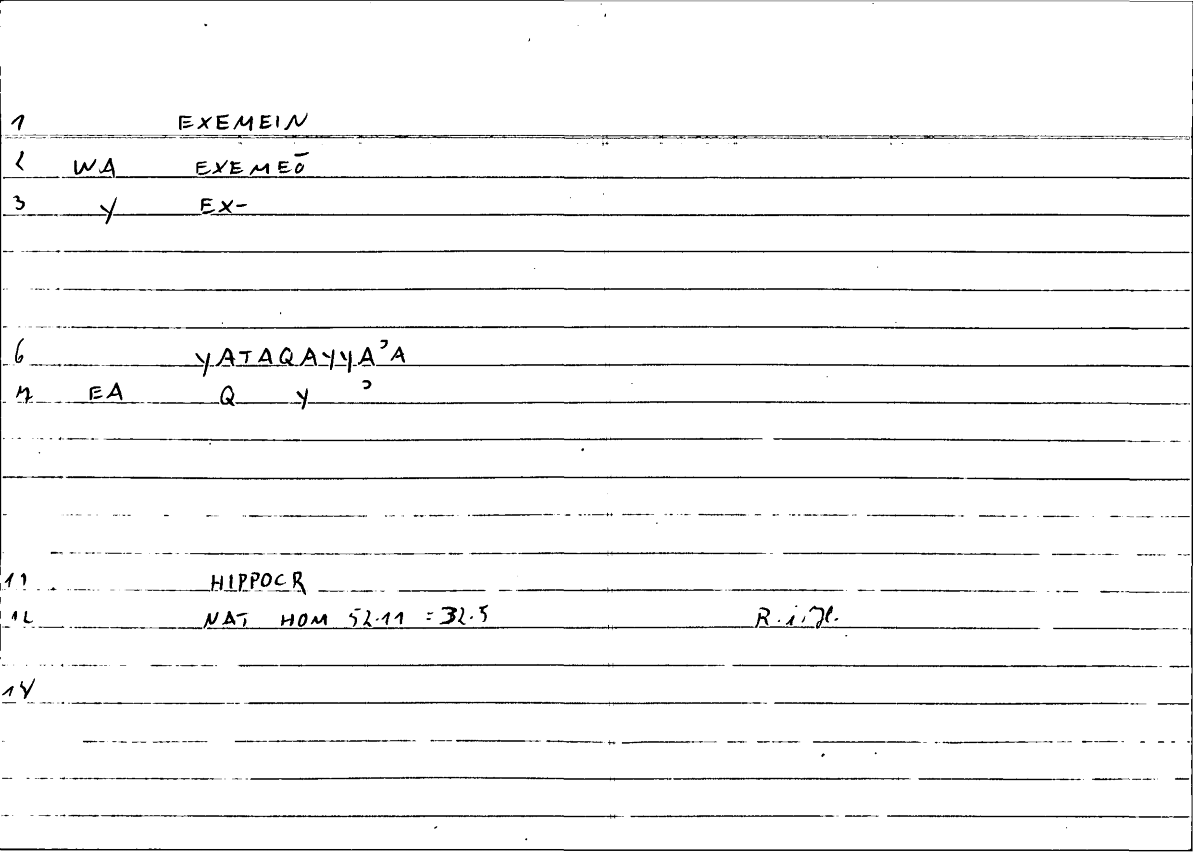 1 EXEMEIN
2 WA EXEMEŌ
3 Y EX-
6 YATAQAYYAʾA
7 EA Q Y ʾ
11 HIPPOCR
12 NAT HOM 52.11 = 32.5
14